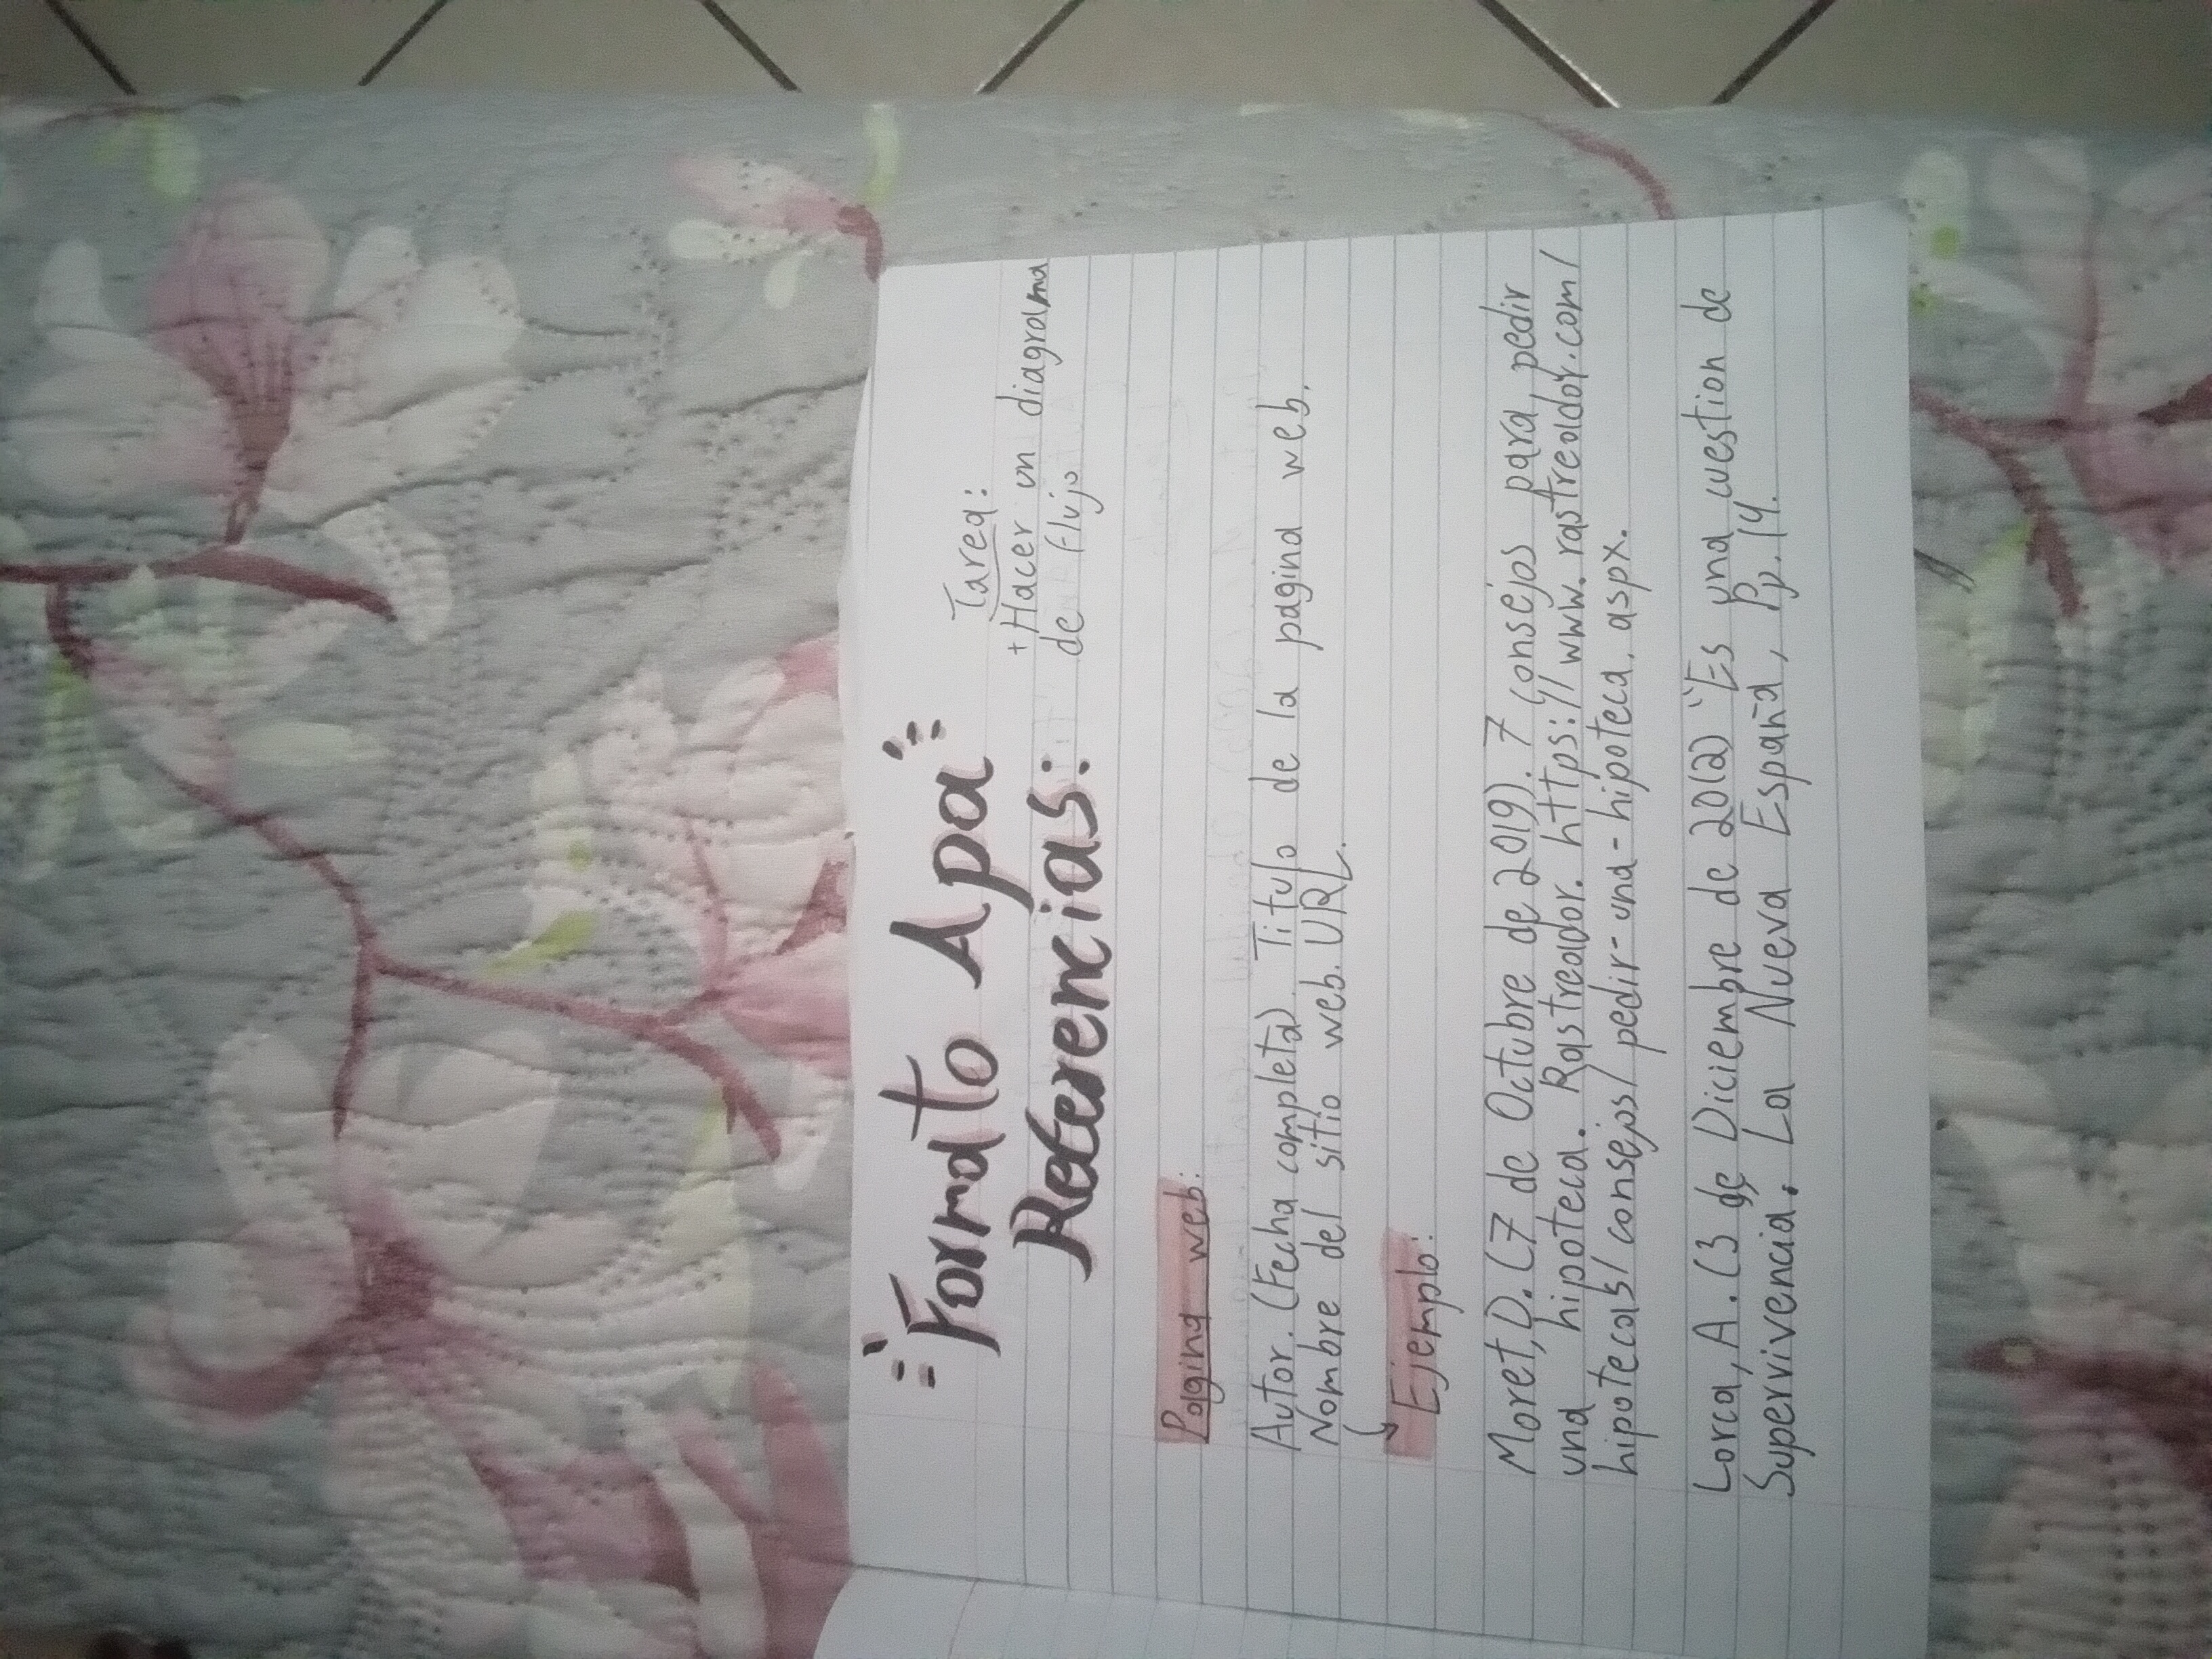 Formato Apa
Referencias:
Tarea:
+ Hacer un diagrama
de flujo
Pagina web:
Autor. (Fecha completa). Titulo de la pagina web.
Nombre del sitio web. URL.
Ejemplo:
Moret, D. (7 de Octubre de 2019). 7 consejos para pedir
una hipoteca. Rastreador. https://www.rastreador.com/
hipotecas/consejos/pedir-una-hipoteca.aspx.
Lorca, A. (3 de Diciembre de 2012) "Es una cuestion de
Supervivencia. La Nueva España, Pp. 14.